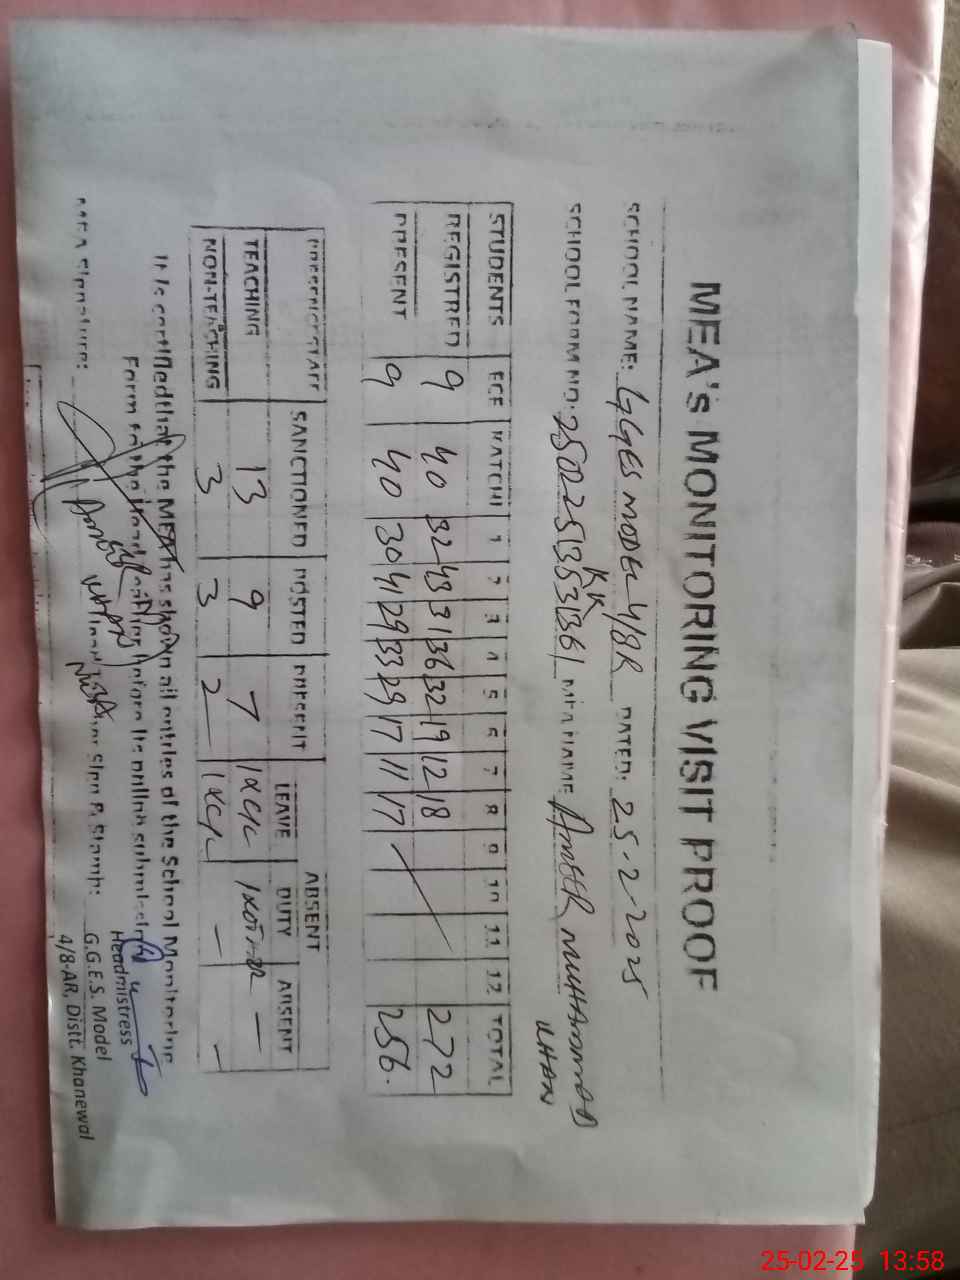 MEA's MONITORING VISIT PROOF
SCHOOL NAME: GGES MODEL 4/8R DATED: 25-2-2025
KK
SCHOOL FORM NO: MEA NAME AMEER MUHAMMAD
KHAN
STUDENTS ECE KATCHI 1 2 3 4 5 6 7 8 9 10 11 12 TOTAL
REGISTRED 9 40 32 43 31 36 32 19 12 18 272
PRESENT 9 40 30 41 29 33 29 17 11 17 256
ABSENT
PRESENCE STAFF SANCTIONED POSTED PRESENT LEAVE DUTY ABSENT
TEACHING 13 9 7 1 —
NON-TEACHING 3 3 2 1 — —
It is certified that the MEA has shown all entries of the School Monitoring
Form to the Head before its online submission
Headmistress
MEA Signature: Sign & Stamp: G.G.E.S. Model
4/8-AR, Distt. Khanewal
25-02-25 13:58